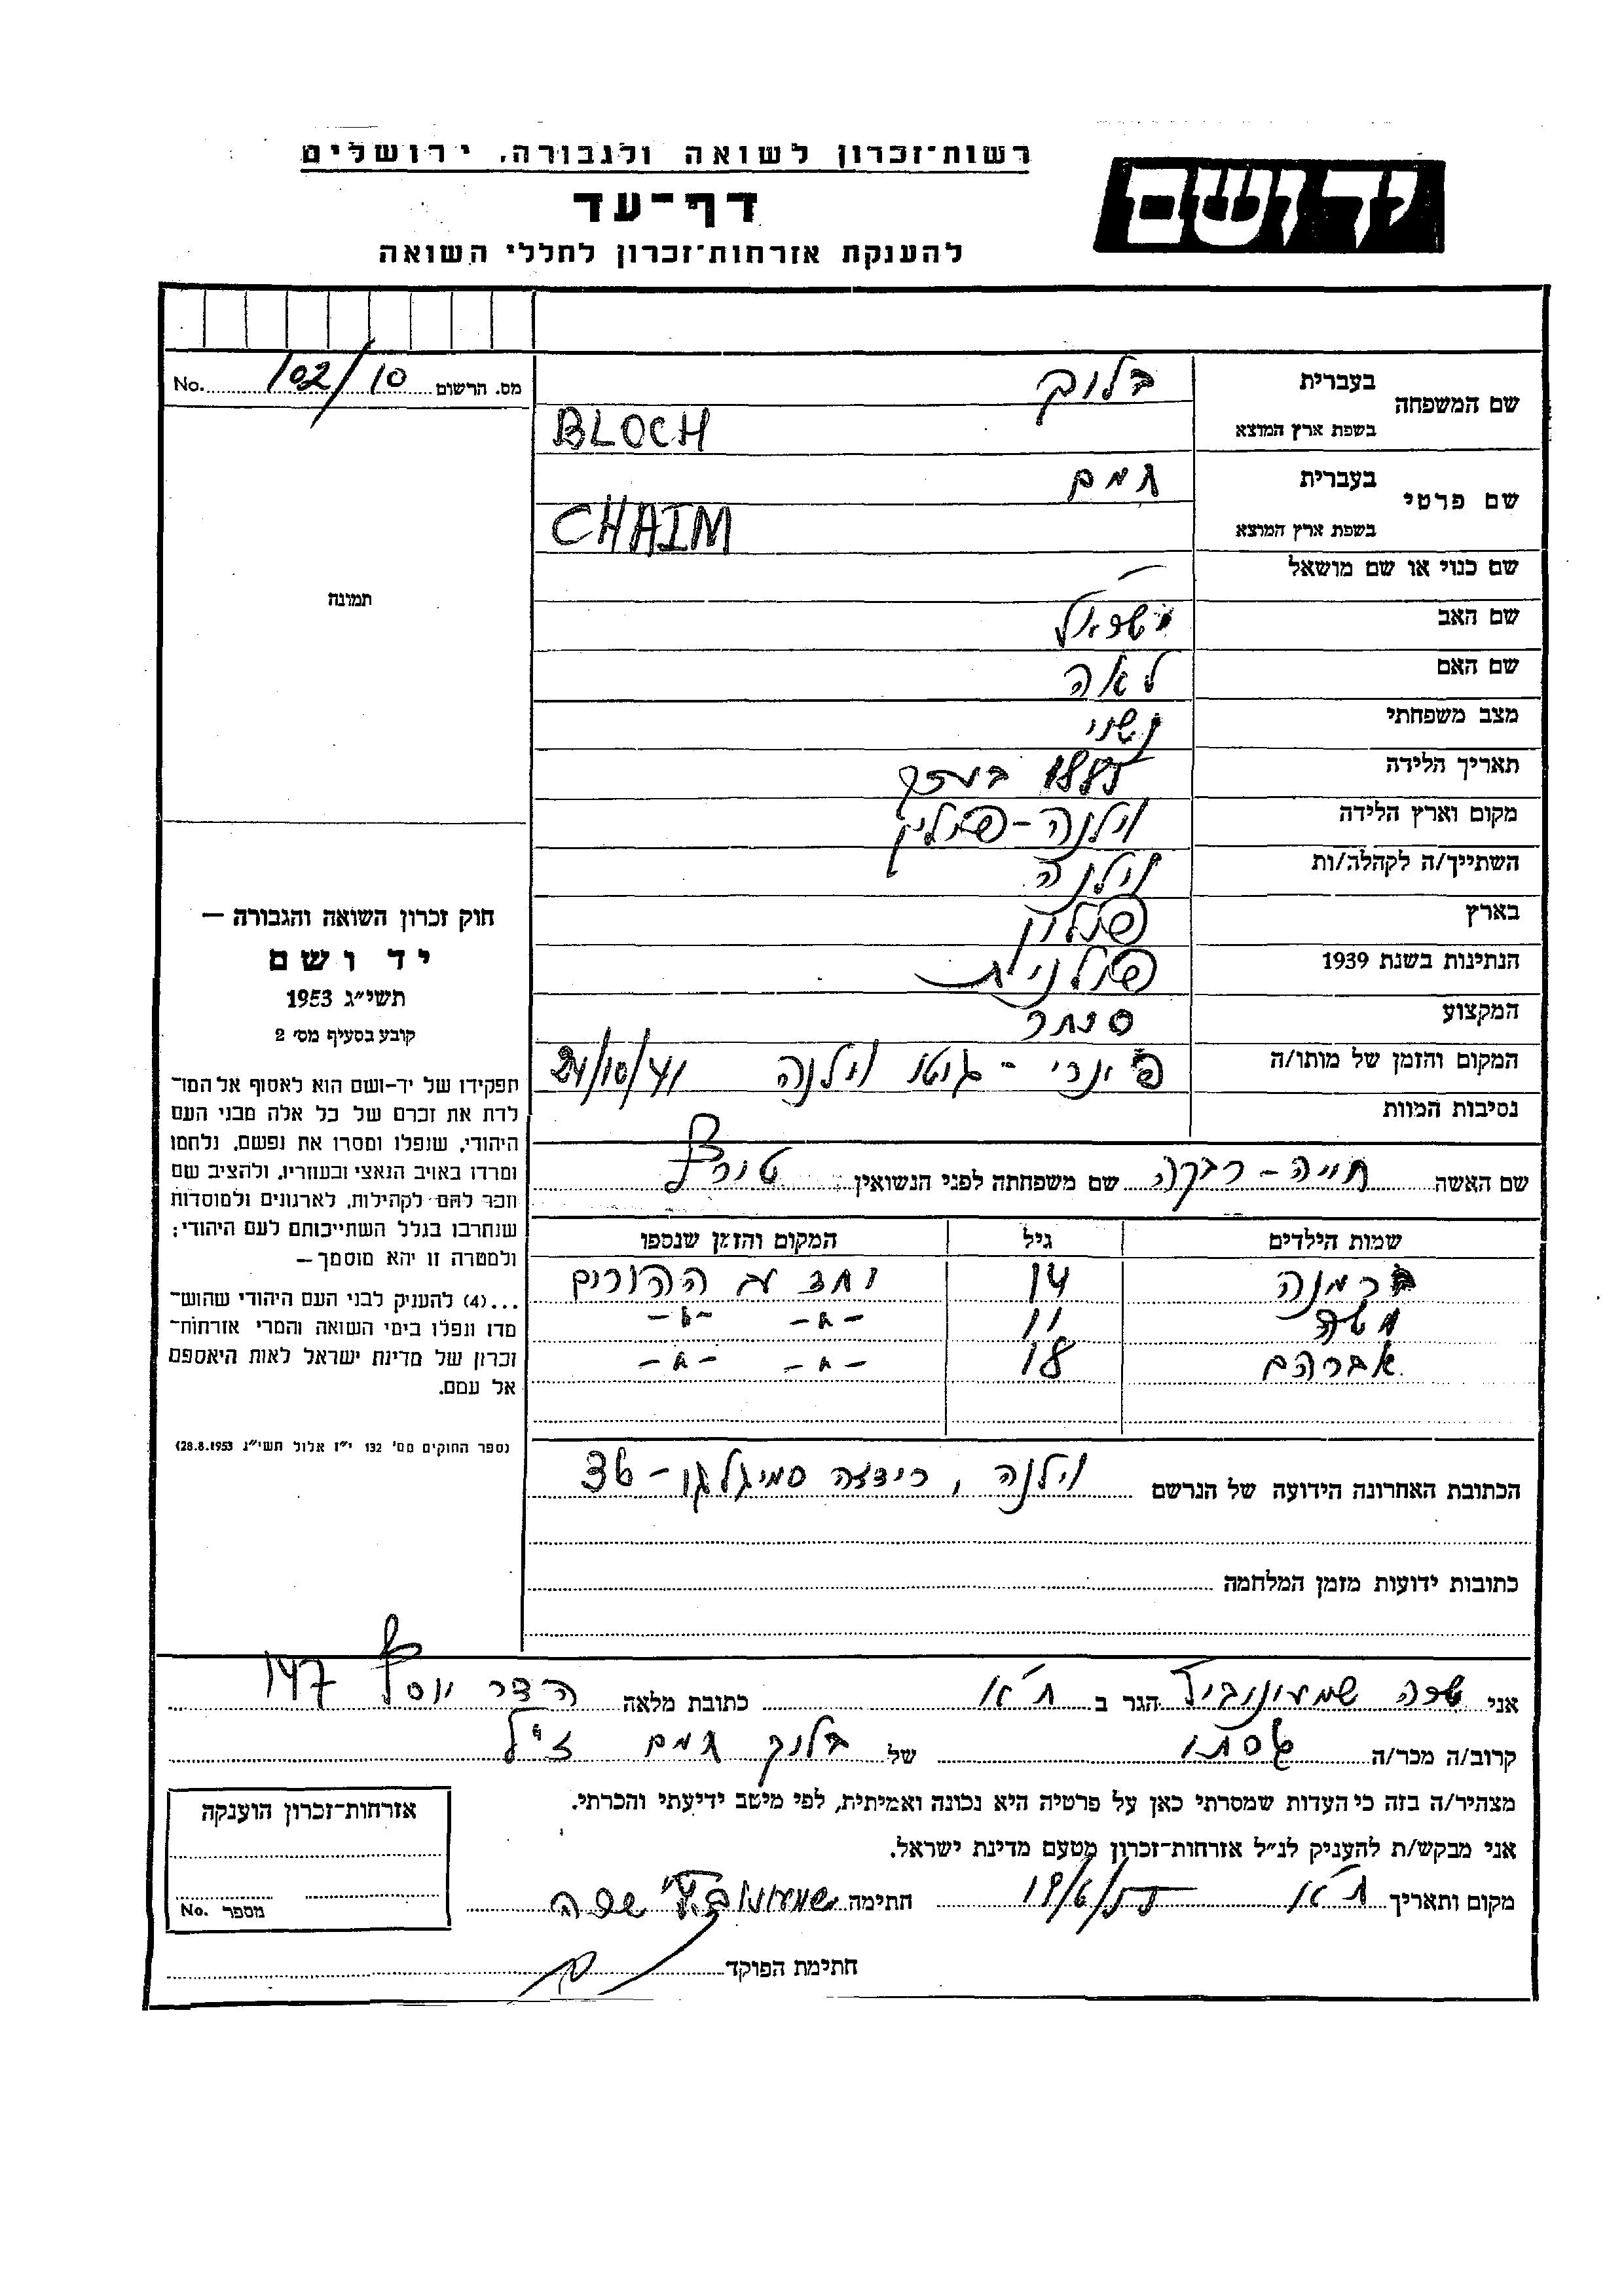 רשות־זכרון לשואה ולגבורה, ירושלים
יד ושם
דף־עד
להענקת אזרחות־זכרון לחללי השואה
מס. הרשום 102/10 No.
שם המשפחה
בעברית בלוך
בשפת ארץ המוצא BLOCH
שם פרטי
בעברית חיים
בשפת ארץ המוצא CHAIM
שם כנוי או שם מושאל —
שם האב ישראל
שם האם לאה
מצב משפחתי נשוי
תאריך הלידה 1885
מקום וארץ הלידה וילנה - פולין
השתייך/ה לקהלה/ות וילנה
בארץ פולין
הנתינות בשנת 1939 פולנית
המקצוע סוחר
המקום והזמן של מותו/ה פונרי - גיטו וילנה 24/10/41
נסיבות המוות
שם האשה חייה - רבקה שם משפחתה לפני הנשואין
שמות הילדים גיל המקום והזמן שנספו
14 יחד עם ההורים
משה 11 -"- -"-
אברהם 18 -"- -"-
הכתובת האחרונה הידועה של הנרשם וילנה,
כתובות ידועות מזמן המלחמה
תמונה
חוק זכרון השואה והגבורה —
יד ושם
תשי״ג 1953
קובע בסעיף מס׳ 2
תפקידו של יד-ושם הוא לאסוף אל המו־
לדת את זכרם של כל אלה מבני העם
היהודי, שנפלו ומסרו את נפשם, נלחמו
ומרדו באויב הנאצי ובעוזריו, ולהציב שם
וזכר להם לקהילות, לארגונים ולמוסדות
שנחרבו בגלל השתייכותם לעם היהודי;
ולמטרה זו יהא מוסמך —
...(4) להעניק לבני העם היהודי שהוש־
מדו ונפלו בימי השואה והמרי אזרחות־
זכרון של מדינת ישראל לאות היאספם
אל עמם.
(ספר החוקים מס׳ 132 י״ז אלול תשי״ג 28.8.1953)
אני שרה שמעונוביץ הגר ב ת״א כתובת מלאה הדר יוסף 147
קרוב/ה מכר/ה גיסתו של בלוך חיים ז״ל
מצהיר/ה בזה כי העדות שמסרתי כאן על פרטיה היא נכונה ואמיתית, לפי מיטב ידיעתי והכרתי.
אני מבקש/ת להעניק לנ״ל אזרחות־זכרון מטעם מדינת ישראל.
מקום ותאריך ת״א חתימה שמעונוביץ שרה
חתימת הפוקד
אזרחות־זכרון הוענקה
מספר No.